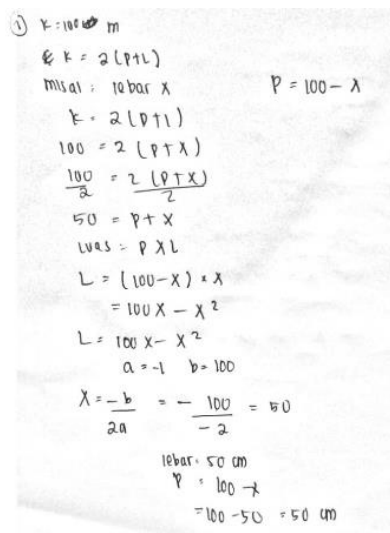 ① K = 100 m
K = 2 (P+L)
misal : lebar x P = 100 - x
K = 2 (P+l)
100 = 2 (P+x)
100/2 = 2 (P+x)/2
50 = P + x
Luas = P x L
L = (100-x) x x
= 100x - x²
L = 100x - x²
a = -1 b = 100
x = -b/2a = - 100/-2 = 50
lebar = 50 cm
P = 100 - x
= 100 - 50 = 50 cm